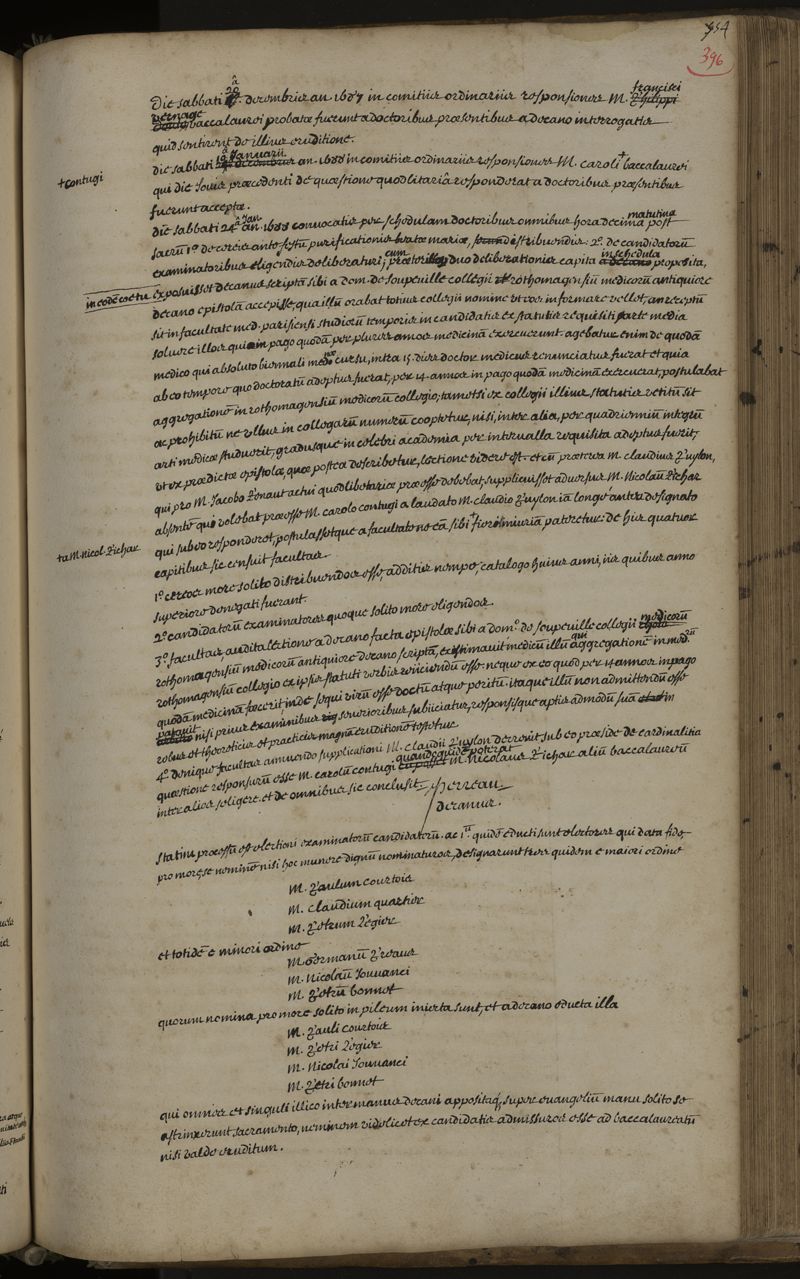 954
396
Die sabbati 20ª decembris an 1687 in comitiis ordinariis responsiones M. francisci
pernage baccalaurei probatæ fuerunt a doctoribus præsentibus a decano interrogatis
quid sentirent de illius eruditione.
die sabbati januarii an. 1688 in comitiis ordinariis responsiones M. caroli + baccalaurei
+ contugi
qui die Jovis præcedenti de quæstione quodlitaria responderat a doctoribus præsentibus
fuerunt acceptæ.
die sabbati 24ª Jan. 1688 convocatis per schedulam doctoribus omnibus hora decima matutina post
sacrū 1º de cereis ante festū purificationis beatæ mariæ, distribuendis. 2º. de candidatorū
examinatoribus eligendis deliberaturi; cum præter duo deliberationis capita in schedula proposita,
in eodē cœtu exposuisset decanus scriptā sibi a dom. de soupeuille collegii rothomagensiū medicorum antiquiore
decano epistolā accepisse, qua illū orabat totius collegii nomine ut vos informare vellet, an receptū
sit in facultate med. parisiensi studiorū temporis in candidatis ex statutis requisiti parte media
solvere illos qui in pago quodā per plures annos medicinā exercuerunt. agebatur enim de quodā
medico qui absoluto biennali med. cursu, intra 15. dies doctor medicus renunciatus fuerat et quia
ab eo tempore quo doctoratū adeptus fuerat, per 14. annos in pago quodā medicinā exercuerat, postulabat
aggregationē in rothomagensiū medicorū collegio, tametsi ex collegii illius statutis vetitū sit
ac prohibitū ne ullus in collegarū numerū cooptetur, nisi, inter alia, per quadriennium integrū
arti medicæ studuerit, gradusque in celebri academia per intervalla requisita adeptus fuerit,
ut ex prædictæ epistolæ, quæ postea describetur, lectione videre est. et cū præterea M. claudius Puylon,
qui pro M. Jacobo Renaut actui quodlibetariæ præesse debebat, supplicuisset adversus M. Nicolaū Richar
absentē qui volebat præesse M. carolo contugi a laudato M. claudio Puylon iā longe antea designato
+ a M. nicol. Richar
qui sub eo responderet, postulassetque a facultate ne eā sibi + fieri injuriā pateretur: de his quatuor
capitibus sic censuit facultas
1º cereos more solito distribuendos esse, additis nempe, catalogo hujus anni, iis quibus anno
superiore denegati fuerant.
2º candidatorū examinatores quoque solito more eligendos.
3º facultas, audita lectione a decano facta epistolæ sibi a domº. de soupeuille collegii medicorū
rothomagensiū medicorū antiquiore decano scriptā, existimavit medicū illū qui aggregationē in medrū
rothomagensiū collegio ex ipsis statuti verbis reiiciendū esse. neque ex eo quod per 14 annos in pago
quodā medicinā fecerit, inde sequi virū esse doctū atque peritū. itaque illū non admittendū esse
petiuit nisi prius examinibus severioribus subiiciatur, responsisque aptis admodū suā in
rebus et theoreticis et practicis magnā eruditionē testetur.
4º denique facultas annuendo supplicationi M. claudii Puylon decrevit sub eo præside de cardinalitia
quæstione responsurū esse M. carolū contugi quandoquidē poterat M. Nicolaus Richar aliū baccalaureū
inter alios seligere. et de omnibus sic conclusit. pierreau
decanus.
statim processū est electioni examinatorū candidatorū. ac 1ū quidē educti sunt electores qui data fide
pro more, se neminē nisi hoc munere dignū nominaturos, designarunt tres quidem e maiori ordine
M. Paulum courtois
M. claudium quartier
M. Petrum Legier
et totidē e minori ordine
M. Germanū Preaux
M. Nicolaū Jouvanci
M. Petrū bonnet
quorum nomina pro more solito in pileum iniecta sunt, et a decano educta illa
M. Pauli courtois
M. Petri Legier
M. Nicolai Jouvanci
M. Petri bonnet
qui omnes et singuli illico inter manus decani appositaq, super evangeliū manu solito se
astrinxerunt sacramento, neminem videlicet ex candidatis admissuros esse ad baccalaureatū
nisi valde eruditum.